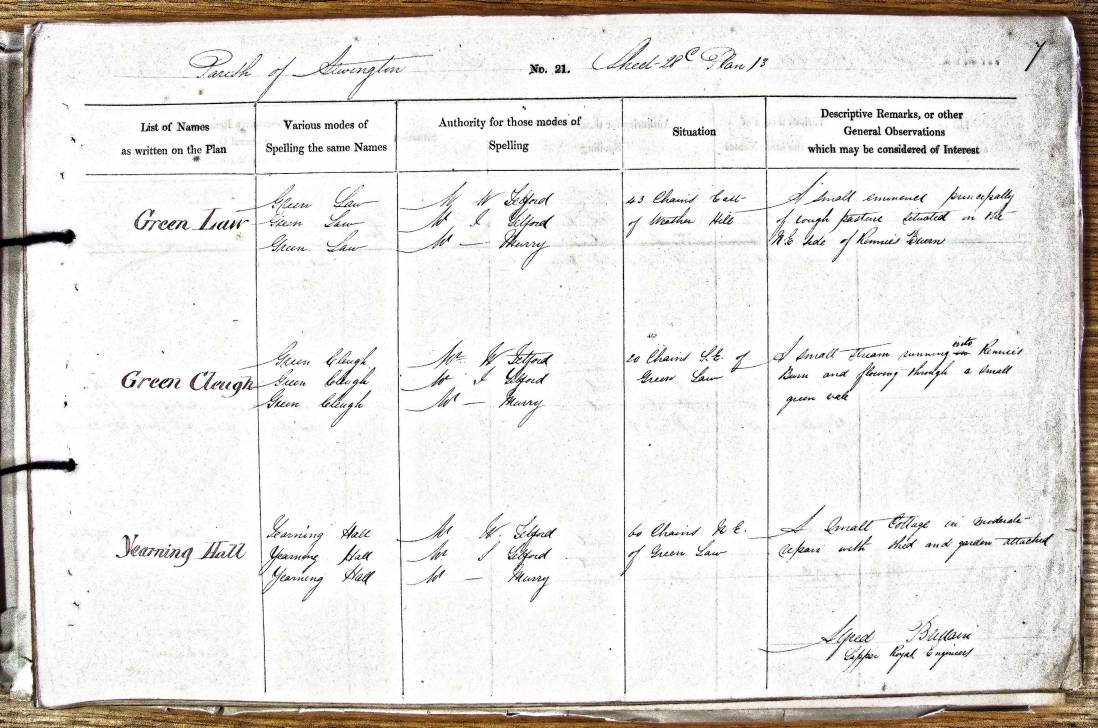 7
Parish of Ilwington No. 21. Sheet 28c Plan 13
List of Names
as written on the Plan
Various modes of
Spelling the same Names
Authority for those modes of
Spelling
Situation
Descriptive Remarks, or other
General Observations
which may be considered of Interest
Green Law
Green Law
Green Law
Green Law
Mr W Telford
Mr I Telford
Mr — Murry
43 Chains East
of Weather Hill
A small eminence principally
of rough pasture situated on the
N.E. Side of Rennie's Burn
Green Cleugh
Green Cleugh
Green Cleugh
Green Cleugh
Mr W Telford
Mr I Telford
Mr — Murry
20 Chains S.E. of
Green Law
A small stream running into Rennie's
Burn and flowing through a small
green vale
Yearning Hall
Yearning Hall
Yearning Hall
Yearning Hall
Mr W. Telford
Mr I Telford
Mr — Murry
60 Chains N.E.
of Green Law
A Small Cottage in moderate
repair with shed and garden attached
Alfred Brittain
Sapper Royal Engineers